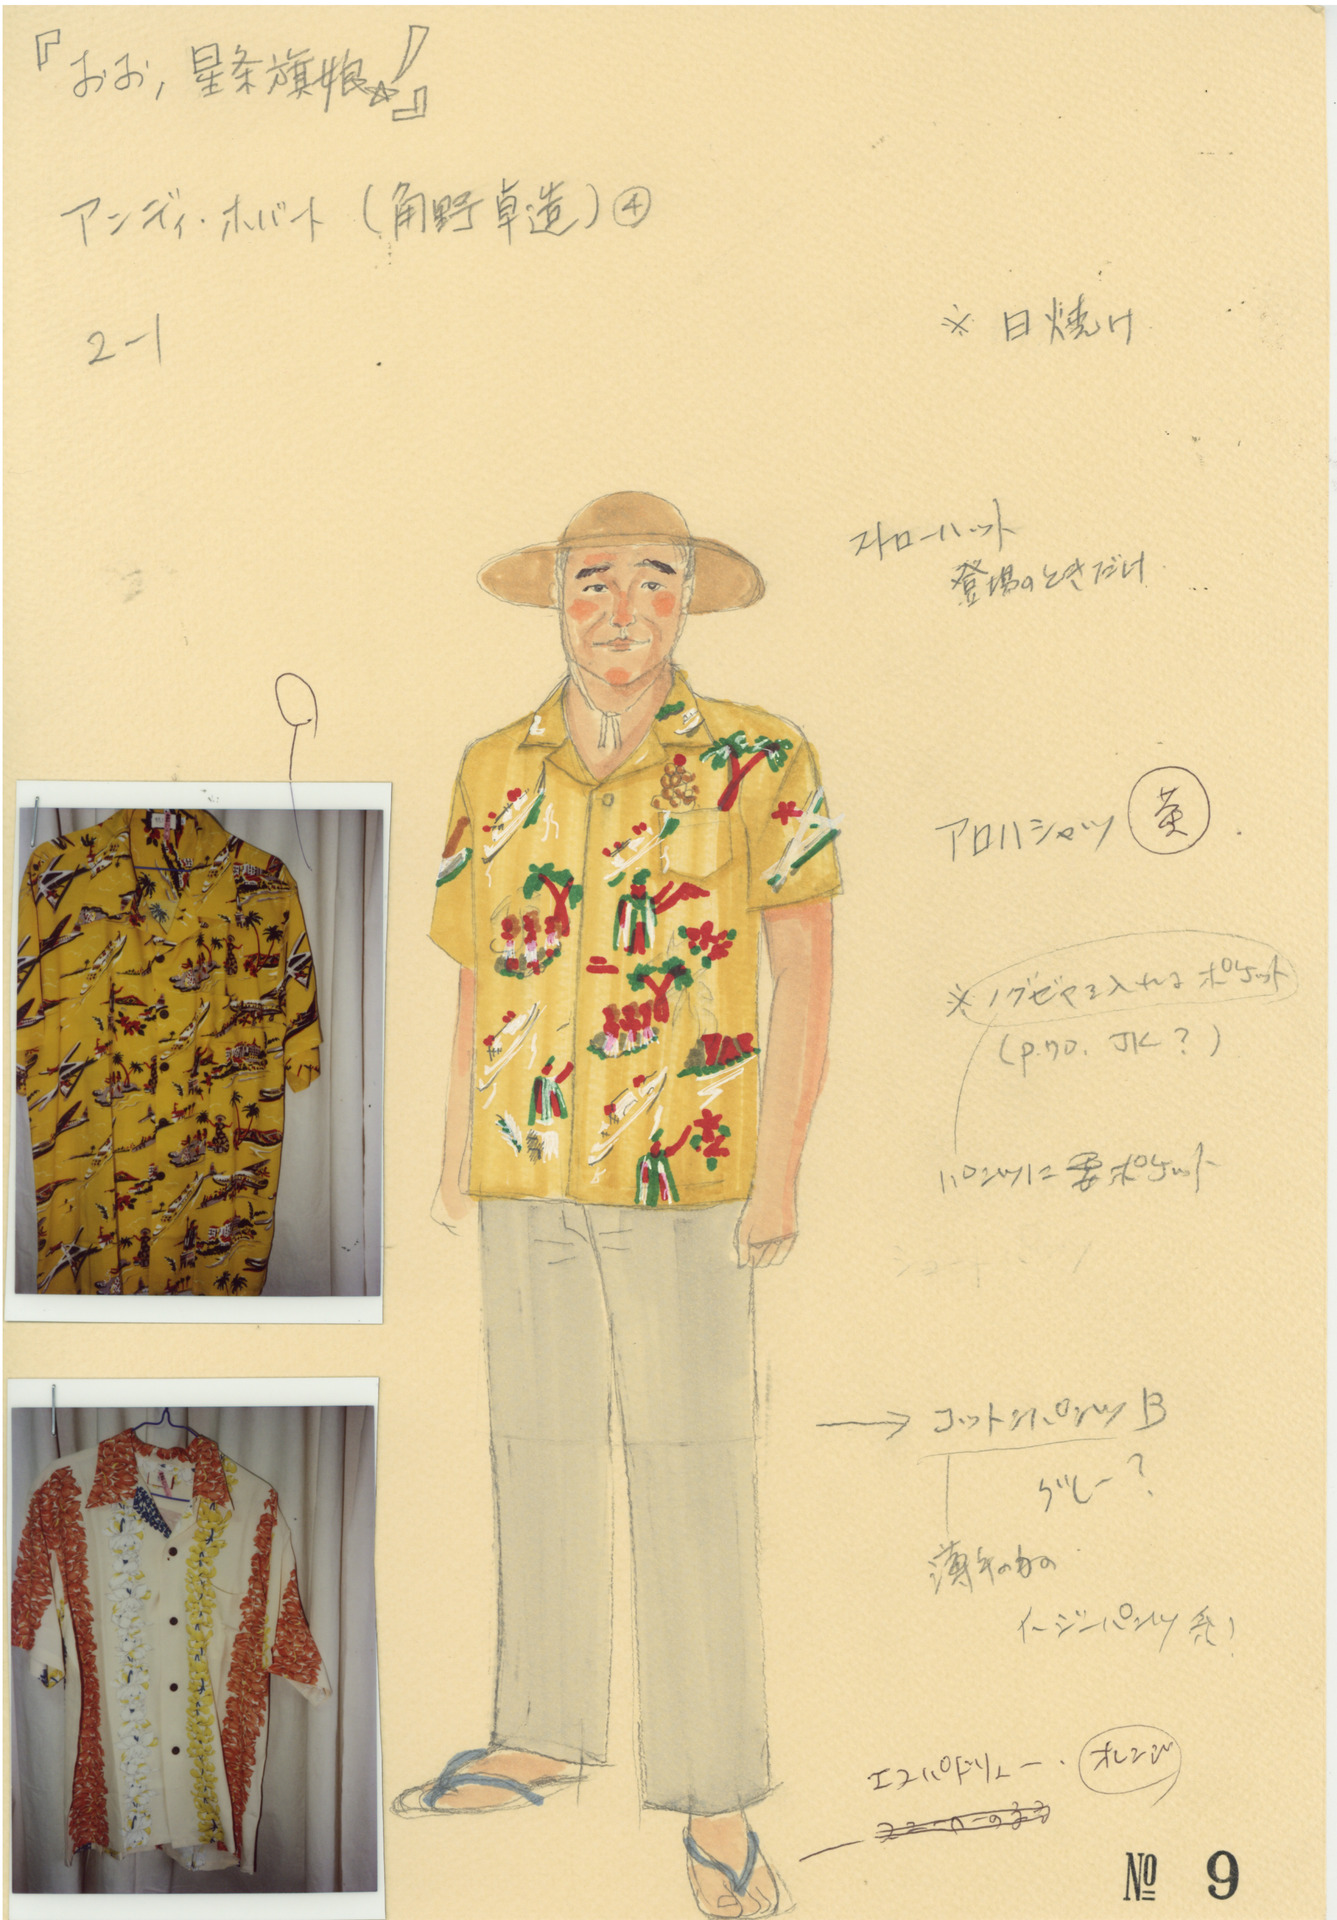 『おお,星条旗娘☆!』
アンディ・ホバート(角野卓造)④
2-1
※ 日焼け
ストローハット
登場のときだけ
アロハシャツ 黄
を入れるポケット
(P.70. JK?)
パンツに要ポケット
→ コットンパンツ B
グレー?
薄手のもの
イージーパンツ系)
エスパドリュー・オレンジ
スニーカーのまま
№ 9